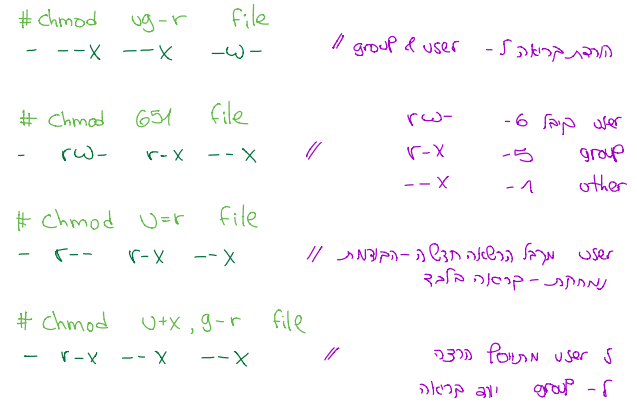 # chmod ug-r file
- --x --x -w- // הורדת קריאה ל- user & group
# chmod 651 file
- rw- r-x --x // user קיבל 6- rw-
group 5- r-x
other 1- --x
# chmod u=r file
- r-- r-x --x // user מקבל הרשאה חדשה - הקודמת
נמחקת - קריאה בלבד
# chmod u+x, g-r file
- r-x --x --x // ל user מתווסף הרצה
ל- group ירד קריאה